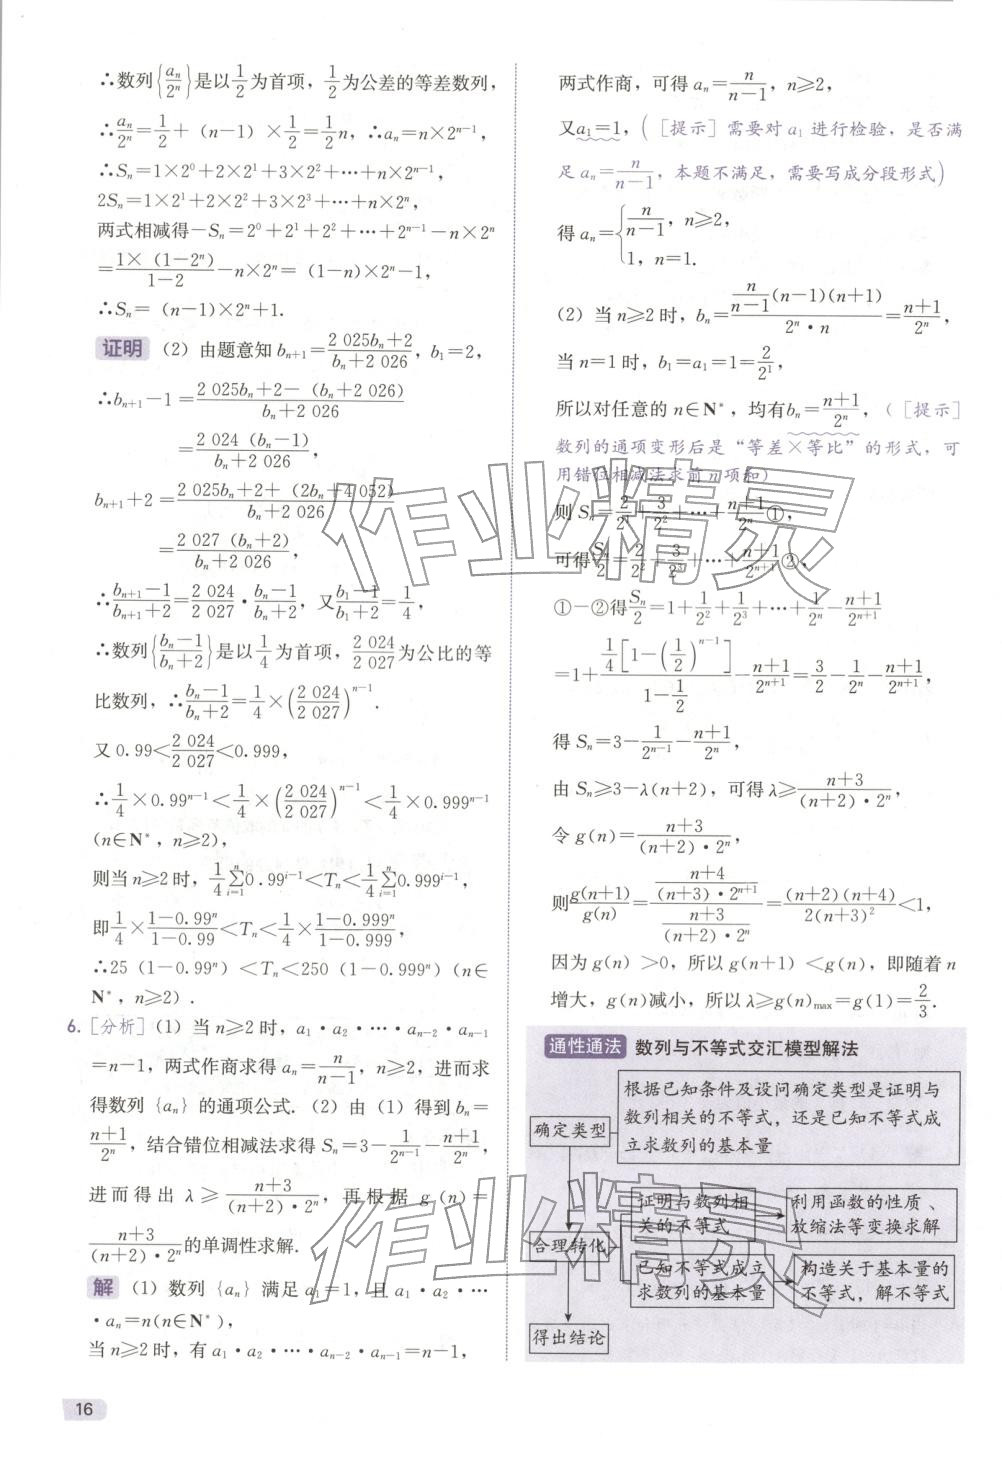 ∴数列{aₙ/2ⁿ}是以1/2为首项，1/2为公差的等差数列，
∴aₙ/2ⁿ=1/2+（n−1）×1/2=1/2n，∴aₙ=n×2ⁿ⁻¹，
∴Sₙ=1×2⁰+2×2¹+3×2²+⋯+n×2ⁿ⁻¹，
2Sₙ=1×2¹+2×2²+3×2³+⋯+n×2ⁿ，
两式相减得−Sₙ=2⁰+2¹+2²+⋯+2ⁿ⁻¹−n×2ⁿ
=1×（1−2ⁿ）/(1−2)−n×2ⁿ=（1−n）×2ⁿ−1，
∴Sₙ=（n−1）×2ⁿ+1.
证明（2）由题意知bₙ₊₁=(2 025bₙ+2)/(bₙ+2 026)，b₁=2，
∴bₙ₊₁−1=(2 025bₙ+2−（bₙ+2 026）)/(bₙ+2 026)
=2 024（bₙ−1）/(bₙ+2 026)，
bₙ₊₁+2=(2 025bₙ+2+（2bₙ+4 052）)/(bₙ+2 026)
=2 027（bₙ+2）/(bₙ+2 026)，
∴(bₙ₊₁−1)/(bₙ₊₁+2)=2 024/2 027·(bₙ−1)/(bₙ+2)，又(b₁−1)/(b₁+2)=1/4，
∴数列{(bₙ−1)/(bₙ+2)}是以1/4为首项，2 024/2 027为公比的等
比数列，∴(bₙ−1)/(bₙ+2)=1/4×(2 024/2 027)ⁿ⁻¹.
又0.99<2 024/2 027<0.999，
∴1/4×0.99ⁿ⁻¹<1/4×(2 024/2 027)ⁿ⁻¹<1/4×0.999ⁿ⁻¹
(n∈N*，n≥2)，
则当n≥2时，1/4∑ⁿᵢ₌₁0.99ⁱ⁻¹<Tₙ<1/4∑ⁿᵢ₌₁0.999ⁱ⁻¹，
即1/4×(1−0.99ⁿ)/(1−0.99)<Tₙ<1/4×(1−0.999ⁿ)/(1−0.999)，
∴25（1−0.99ⁿ）<Tₙ<250（1−0.999ⁿ）（n∈
N*，n≥2）.
6.［分析］（1）当n≥2时，a₁·a₂·⋯·aₙ₋₂·aₙ₋₁
=n−1，两式作商求得aₙ=n/(n−1)，n≥2，进而求
得数列{aₙ}的通项公式.（2）由（1）得到bₙ=
(n+1)/2ⁿ，结合错位相减法求得Sₙ=3−1/2ⁿ⁻¹−(n+1)/2ⁿ，
进而得出λ≥(n+3)/((n+2)·2ⁿ)，再根据g(n)=
(n+3)/((n+2)·2ⁿ)的单调性求解.
解（1）数列{aₙ}满足a₁=1，且a₁·a₂·⋯
·aₙ=n(n∈N*)，
当n≥2时，有a₁·a₂·⋯·aₙ₋₂·aₙ₋₁=n−1，
16
两式作商，可得aₙ=n/(n−1)，n≥2，
又a₁=1，(［提示］需要对a₁进行检验，是否满
足aₙ=n/(n−1)，本题不满足，需要写成分段形式)
得aₙ={n/(n−1)，n≥2，
1，n=1.
（2）当n≥2时，bₙ=(n/(n−1)(n−1)(n+1))/(2ⁿ·n)=(n+1)/2ⁿ，
当n=1时，b₁=a₁=1=2/2¹，
所以对任意的n∈N*，均有bₙ=(n+1)/2ⁿ，（［提示］
数列的通项变形后是“等差×等比”的形式，可
用错位相减法求前n项和)
则Sₙ=2/2¹+3/2²+⋯+(n+1)/2ⁿ①，
可得Sₙ/2=2/2²+3/2³+⋯+(n+1)/2ⁿ⁺¹②，
①−②得Sₙ/2=1+1/2²+1/2³+⋯+1/2ⁿ−(n+1)/2ⁿ⁺¹
=1+(1/4[1−(1/2)ⁿ⁻¹])/(1−1/2)−(n+1)/2ⁿ⁺¹=3/2−1/2ⁿ−(n+1)/2ⁿ⁺¹，
得Sₙ=3−1/2ⁿ⁻¹−(n+1)/2ⁿ，
由Sₙ≥3−λ(n+2)，可得λ≥(n+3)/((n+2)·2ⁿ)，
令g(n)=(n+3)/((n+2)·2ⁿ)，
则g(n+1)/g(n)=((n+4)/((n+3)·2ⁿ⁺¹))/((n+3)/((n+2)·2ⁿ))=(n+2)(n+4)/(2(n+3)²)<1，
因为g(n)>0，所以g(n+1)<g(n)，即随着n
增大，g(n)减小，所以λ≥g(n)ₘₐₓ=g(1)=2/3.
通性通法 数列与不等式交汇模型解法
确定类型
根据已知条件及设问确定类型是证明与
数列相关的不等式，还是已知不等式成
立求数列的基本量
合理转化
证明与数列相
关的不等式
利用函数的性质、
放缩法等变换求解
已知不等式成立
求数列的基本量
构造关于基本量的
不等式，解不等式
得出结论
作业精灵
作业精灵